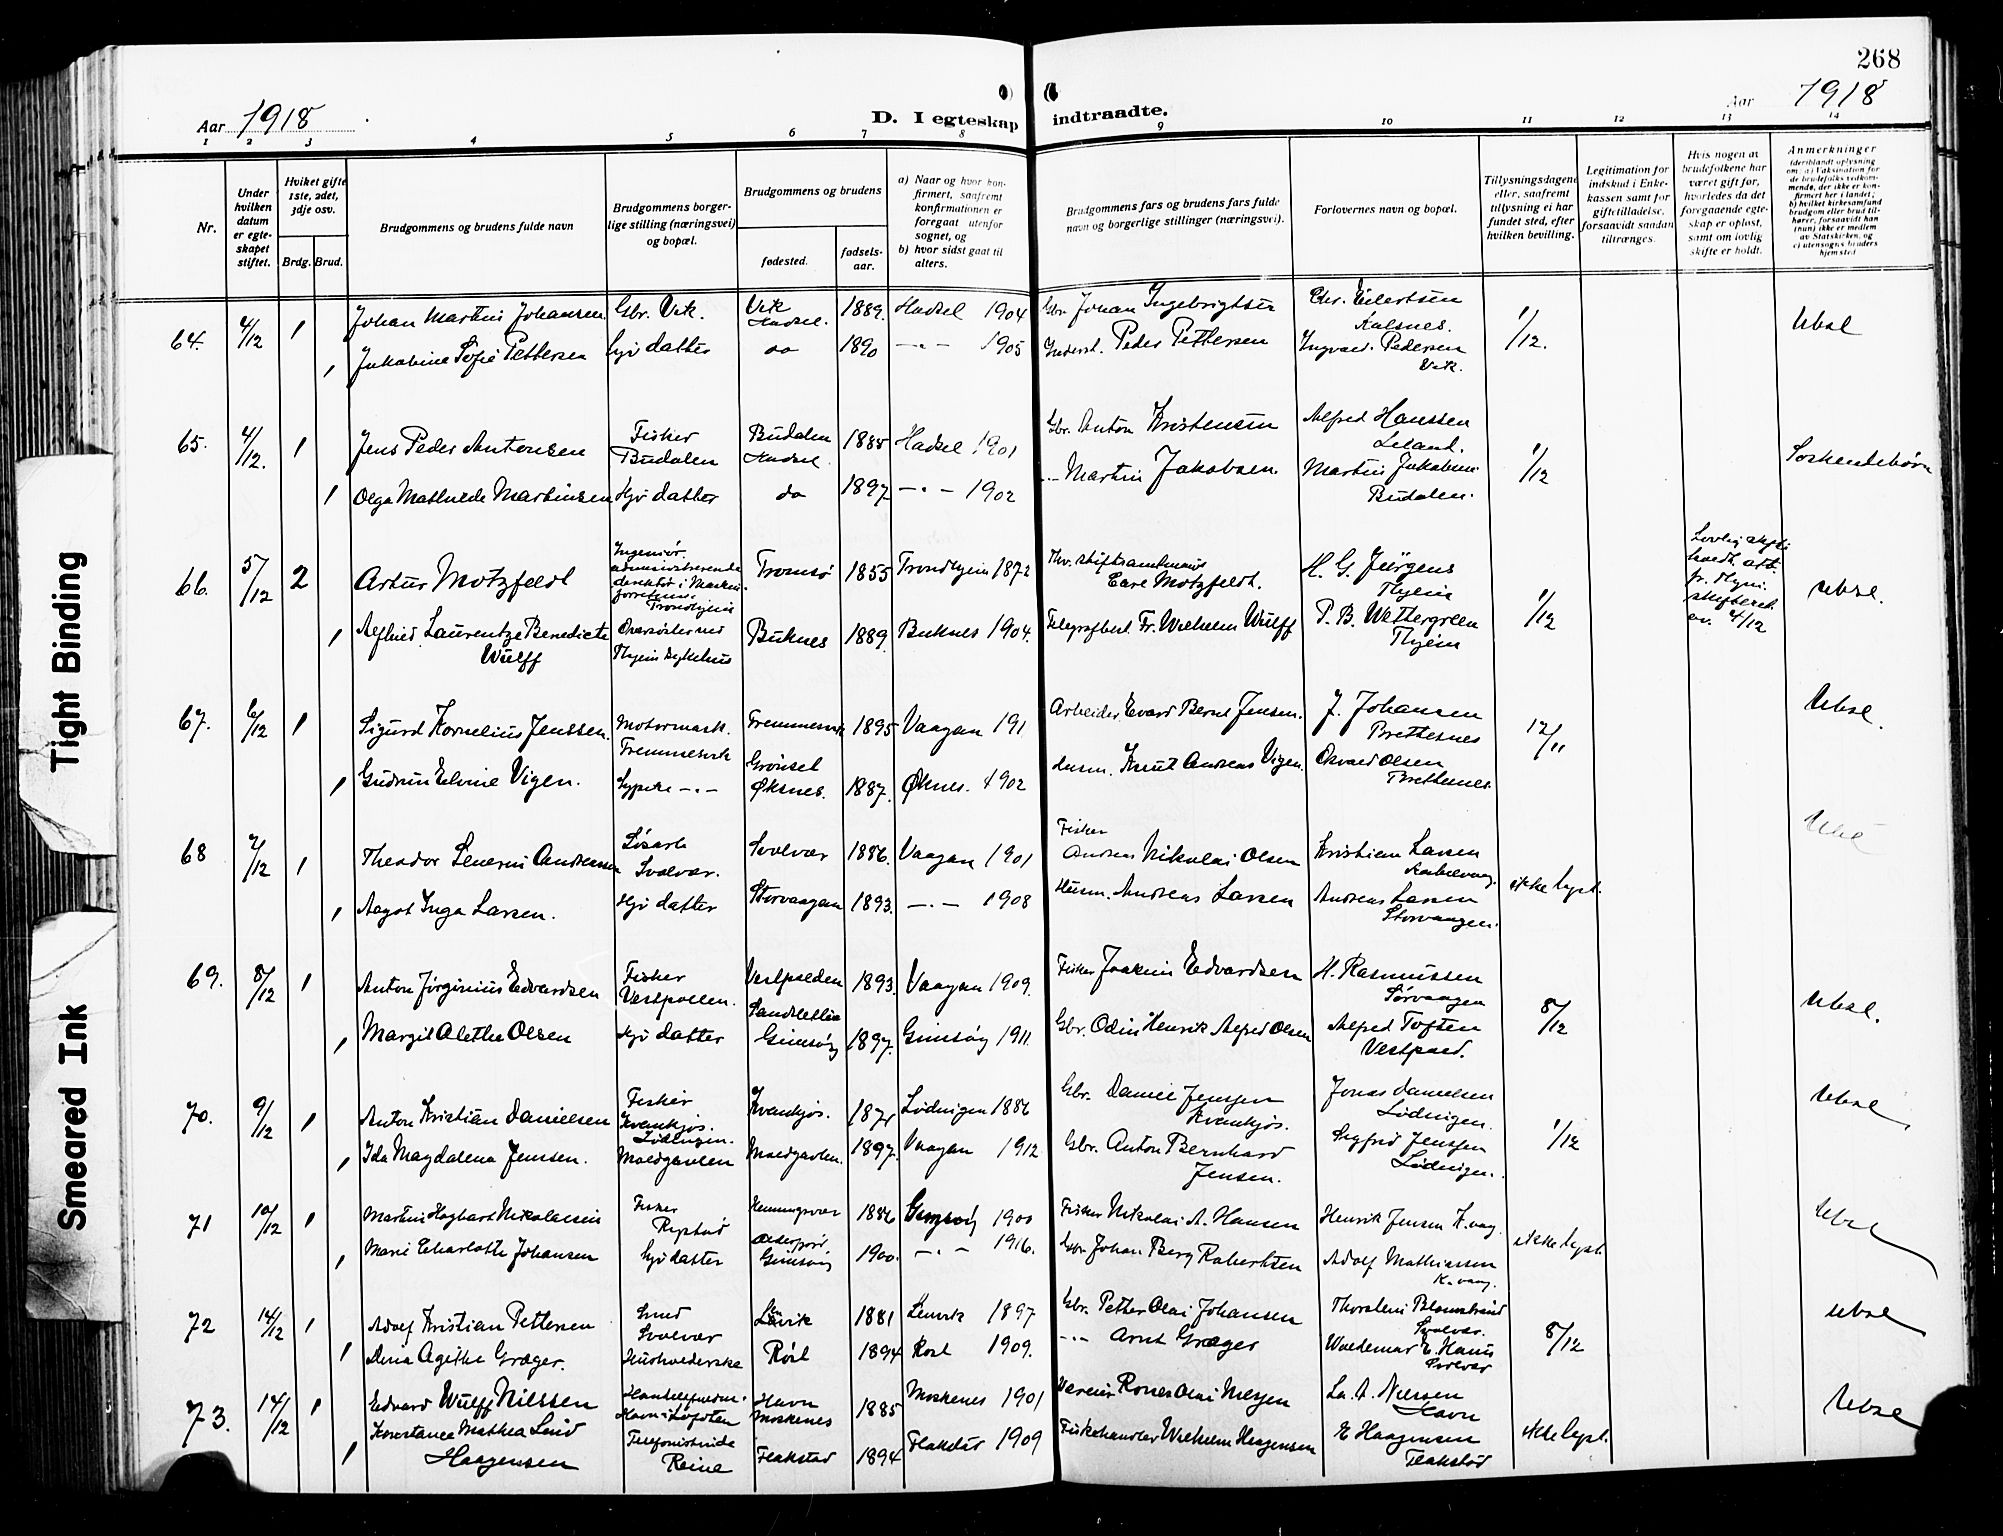 268
Aar 1918
D. I egteskap indtraadte.
Aar 1918
1 2 3 4 5 6 7 8 9 10 11 12 13 14
Nr.
Under hvilken datum er egteskapet stiftet.
Hviket gifte 1ste, 2det, 3dje osv.
Brdg. Brud.
Brudgommens og brudens fulde navn
Brudgommens borgerlige stilling (næringsvei) og bopæl.
Brudgommens og brudens
fødested.
fødselsaar.
a) Naar og hvor konfirmert, saafremt konfirmationen er foregaat utenfor sognet, og
b) hvor sidst gaat til alters.
Brudgommens fars og brudens fars fulde navn og borgerlige stillinger (næringsvei).
Forlovernes navn og bopæl.
Tillysningsdagene eller, saafremt tillysning ei har fundet sted, efter hvilken bevilling.
Legitimation for indskud i Enkekassen samt for giftetilladelse, forsaavidt saadan tiltrænges.
Hvis nogen av brudefolkene har været gift før, hvorledes da det foregaaende egteskap er opløst, samt om lovlig skifte er holdt.
Anmerkninger
64. 4/12 1 Johan Martin Johansen Gbr. Vik. Vik Hadsel. 1889. Hadsel 1904 Gbr Johan Ingebrigtsen Chr. Eilertsen Kalsnes. 1/12. Ubsl
1 Jakobine Sofie Pettersen Gjv datter do 1890 -"- 1905 Inderst. Peder Pettersen Ingvald Pedersen Vik.
65. 4/12. 1 Jens Peder Antonsen Fisker Budalen Budalen Hadsel. 1885 Hadsel 1901 Gbr. Anton Kristensen Alfred Hanssen Leland. 1/12 Søskendebørn
1 Olga Mathilde Martinsen Hjv datter do 1897 -"- 1902 -"- Martin Jakobsen Martin Jakobsen Budalen.
66. 5/12 2 Artur Motzfeldt Ingeniør. administrerende direktør i Trondhjem Tromsø 1855 Trondhjem 1872 Fhv. Stiftsamtmand Carl Motzfeldt. H. G. Jürgens Thjem 1/12 ubsl.
1 Alfhild Laurentze Benedicte Wulff Oversøster ved Thjem sykehus Buknes 1889. Buknes 1904. Telegrafbest. Fr. Wilhelm Wulff P. B. Wettergreen Thjem
67. 6/12 1 Sigurd Kornelius Jenssen. Motormask. Fremmesvik Fremmesvik 1895 Vaagan 191 Arbeider Evard Bernt Jensen. J. Johansen Brettesnes 17/11 Ubsl.
1 Gudrun Elvine Vigen. Syperske -"- Grønsel Øksnes. 1887. Øksnes. 1902 Husm. Knut Andreas Vigen. Osvald Olsen Brettesnes.
68 7/12 1 Theodor Severin Andreassen Løsarb Svolvær. Svolvær 1886. Vaagan 1901 Fisker Andreas Nikolai Olsen Kristian Larsen Kabelvaag. ikke lyst.
1 Aagot Inga Larsen. Hjv datter Storvaagan 1893. -"- 1908 Husm. Andreas Larsen Andreas Larsen Storvaagan.
69. 8/12 1 Anton Jørginius Edvardsen Fisker Vestpollen. Vestpolden 1893. Vaagan 1909. Fisker Joakim Edvardsen M. Rasmussen Sørvaagen 8/12 Ubsl.
1 Margit Alethe Olsen Hjv datter Sandsletten Gimsøy 1897. Gimsøy 1911. Gbr. Odin Henrik Alfred Olsen Alfred Toften Vestpold.
70. 9/12 1 Anton Kristian Danielsen Fisker Kvankjos. Lødingen. Kvankjos. 1871 Lødingen 1886 Gbr. Daniel Jensen Kvankjos. Jonas Danielsen Lødingen. 1/12 Ubsl
1 Ida Magdalena Jensen. Moldgavlen Moldgavlen. 1897. Vaagan 1912 Gbr. Anton Bernhard Jensen. Sigfrid Jenssen Lødingen.
71 10/12 1 Martin Hagbart Nikolaisen Fisker Rystad Henningsvær 1886 Gimsøy 1900 Fisker Nikolai A. Hansen Henrik Jensen K.vaag. ikke lyst. Ubsl
1 Marie Charlotte Johansen Gjv datter Gimsøy 1900. -"- 1916. Gbr Johan Berg Robertsen Adolf Mathiassen K.vaag.
72 14/12 1 Adolf Kristian Pettersen Smed Svolvær Lenvik 1881 Lenvik 1897 Gbr. Petter Olai Johansen Thorstein Blomstrand Svolvær. 8/12 Ubsl
1 Dina Agithe Græger. Husholderske Røst 1894 Røst 1909. -"- Arnt Græger Waldemar E. Hanss Svolvær
73. 14/12 1 Edvard Wulff Nilssen Havn i Lofoten Havn Moskenes 1885 Moskenes 1901 La. A. Nilssen Havn ikke lyst. Ubsl
1 Konstance Mathea Lind Haagensen Telefonistinde Reine Flakstad 1894 Flakstad 1909 Fiskehandler Wilhelm Haagensen E Haagensen Flakstad
Tight Binding
Smeared Ink